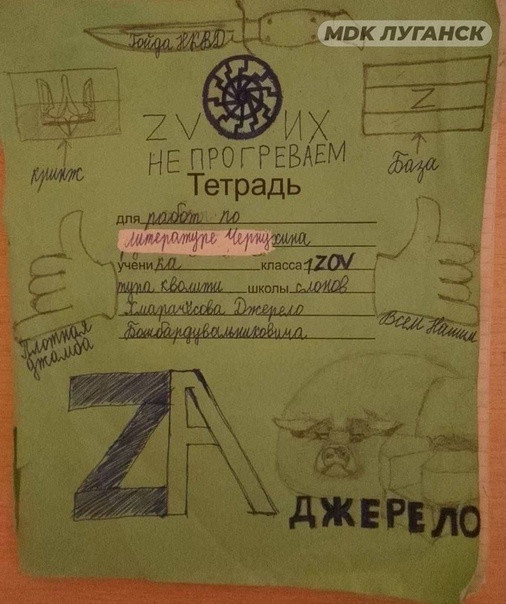 МDК ЛУГАНСК
Гойда НКВД
Z
ZVОИХ
НЕ ПРОГРЕВАЕМ
кринж
База
Тетрадь
для работ по
литературе Чернухина
ученика класса 1ZOV
тупа кволити школы слонов
Хмарачёсова Джерело
Бомбардувальниковича
Плотная
джамба
Всем Нашим
ZА
ДЖЕРЕЛО